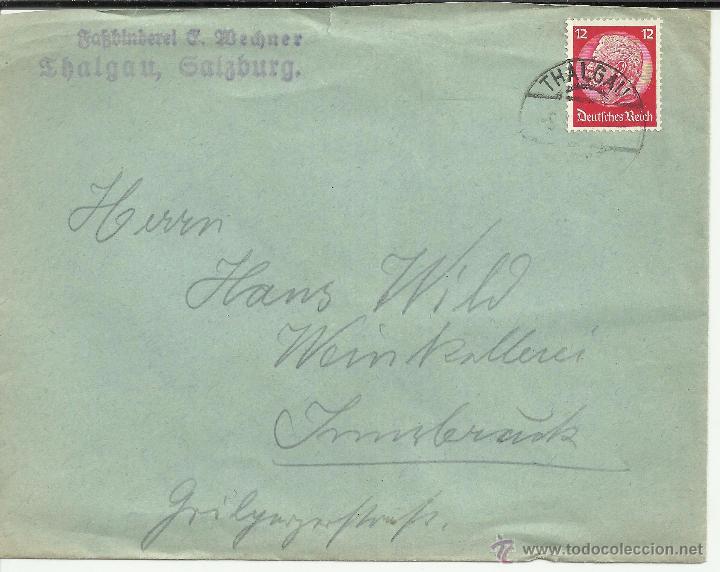 Faßbinderei C. Wechner
Thalgau, Salzburg.
12 12
THALGAU
Deutsches Reich
Herrn
Hans Wild
Weinkellerei
Innsbruck
Grilparzerstraße.
www.todocoleccion.net